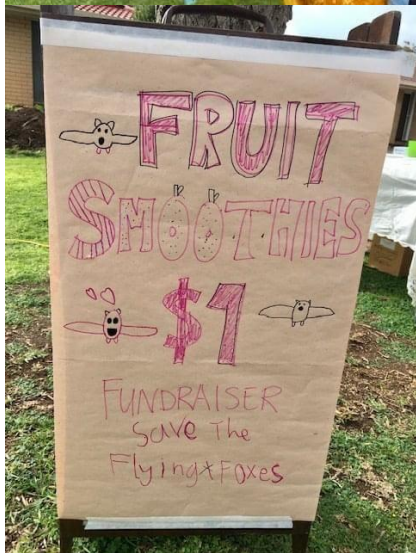 FRUIT
SMOOTHIES
$1
FUNDRAISER
save The
Flying*Foxes